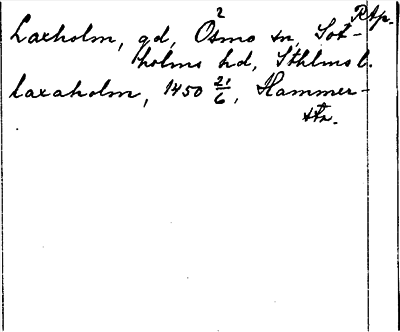 Rtp.
Laxholm, gd, Ösmo sn, Sot-
holms hd, Sthlms l.
laxaholm, 1450 21/6, Hammer-
sta.